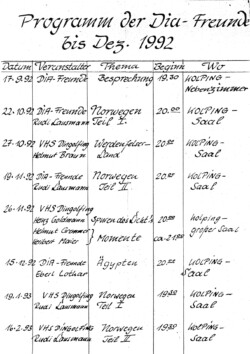 Programm der Dia-Freunde
bis Dez. 1992
Datum Veranstalter Thema Beginn Wo
17.9.92 DiA-Freunde Besprechung 19.30 KOLPING-
Nebenzimmer
22.10.92 DiA-Freunde Norwegen 20.00 KOLPING-
Rudi Lausmann Teil I. Saal
27.10.92 VHS Dingolfing Werdenfelser- 20.00 KOLPING-
Helmut Braun Land Saal
19.11.92 DiA-Freunde Norwegen 20.00 KOLPING-
Rudi Lausmann Teil II Saal
26.11.92 VHS Dingolfing
Heinz Goldmann Spuren des Lichts 20.00 Kolping-
Helmut Crommer großer Saal
Herbert Maier } Momente ca. 21
15.12.92 DiA-Freunde Ägypten 20.00 KOLPING-
Eberl Lothar Saal
19.1.93 VHS Dingolfing Norwegen 19.30 KOLPING-
Rudi Lausmann Teil I Saal
16.2.93 VHS Dingolfing Norwegen 19.30 KOLPING-
Rudi Lausmann Teil II Saal